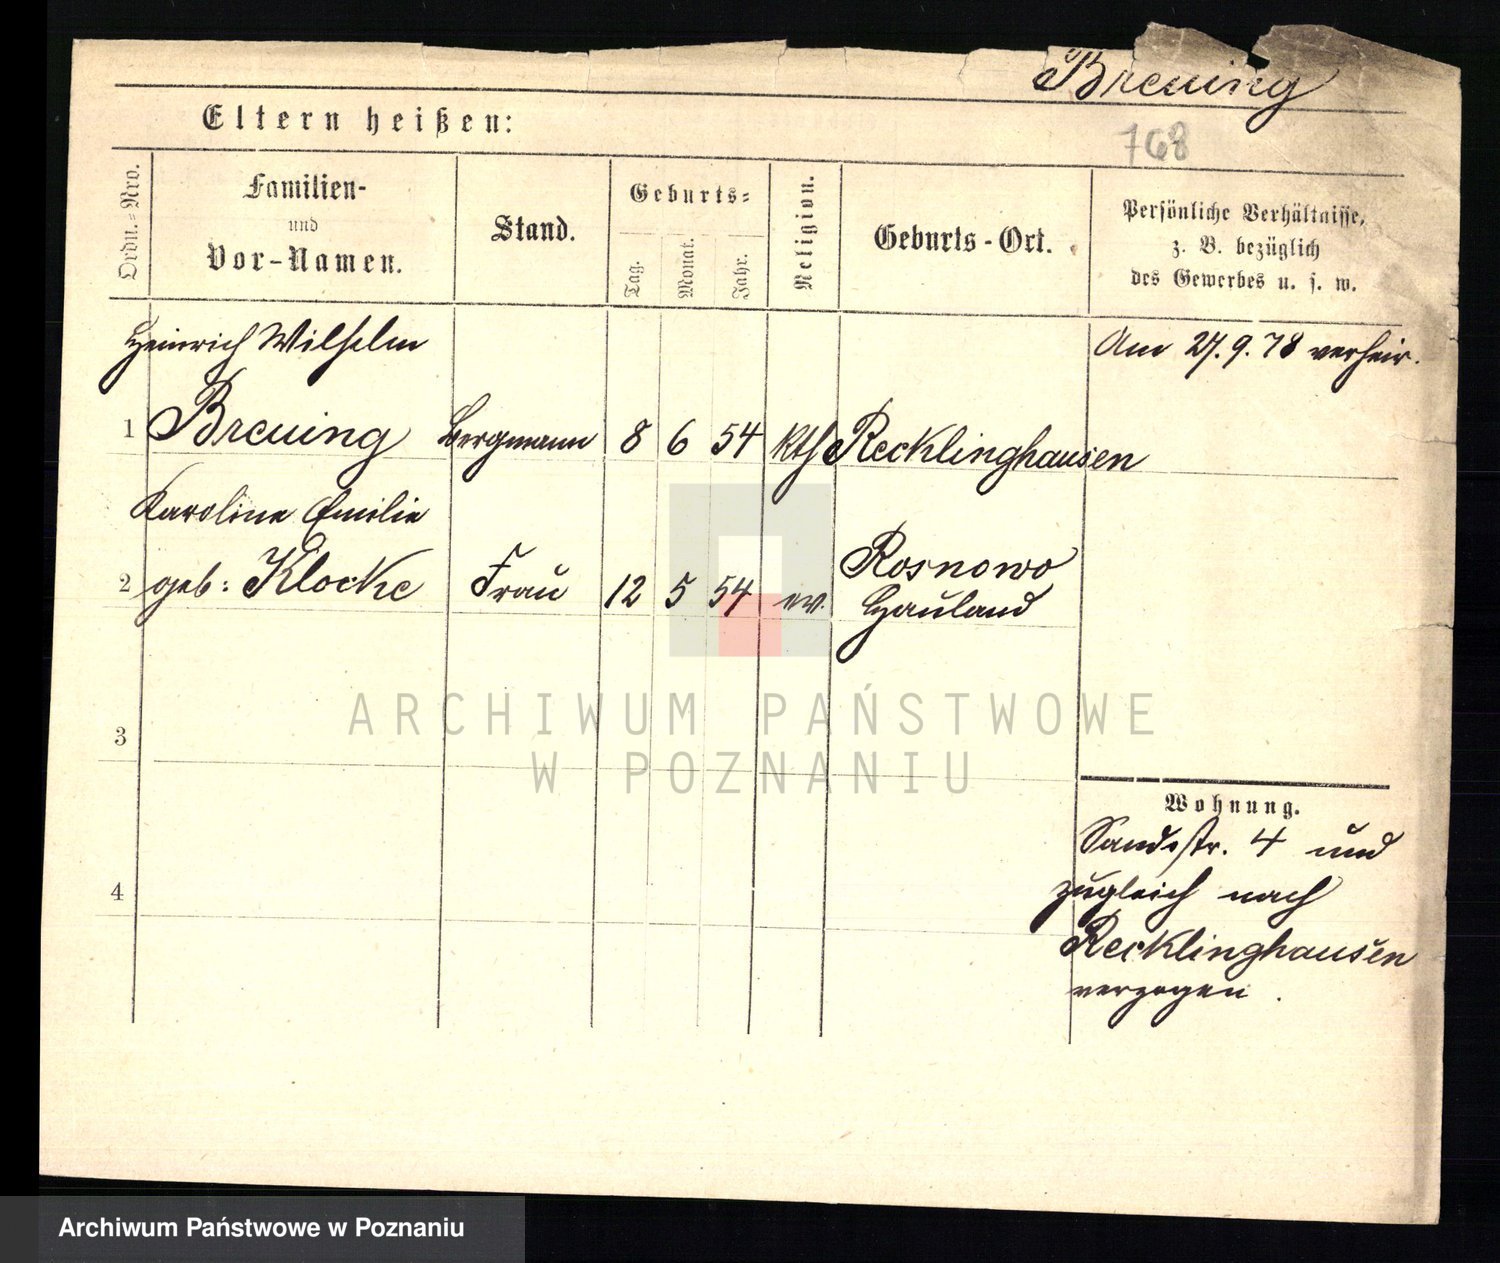 Breuing
Eltern heißen:
768
Ordn.=Nro.
Familien-
und
Vor-Namen.
Stand.
Geburts=
Tag.
Monat.
Jahr.
Religion.
Geburts-Ort.
Persönliche Verhältnisse,
z. B. bezüglich
des Gewerbes u. s. w.
Heinrich Wilhelm
Am 27. 9. 78 verheir.
1 Breuing Bergmann 8 6 54 kth Recklinghausen
Karoline Emilie
2 geb: Klocke Frau 12 5 54 ev. Rosnowo
Hauland
ARCHIWUM PAŃSTWOWE
W POZNANIU
3
Wohnung.
Sandstr. 4 und
4
zugleich nach
Recklinghausen
verzogen.
Archiwum Państwowe w Poznaniu